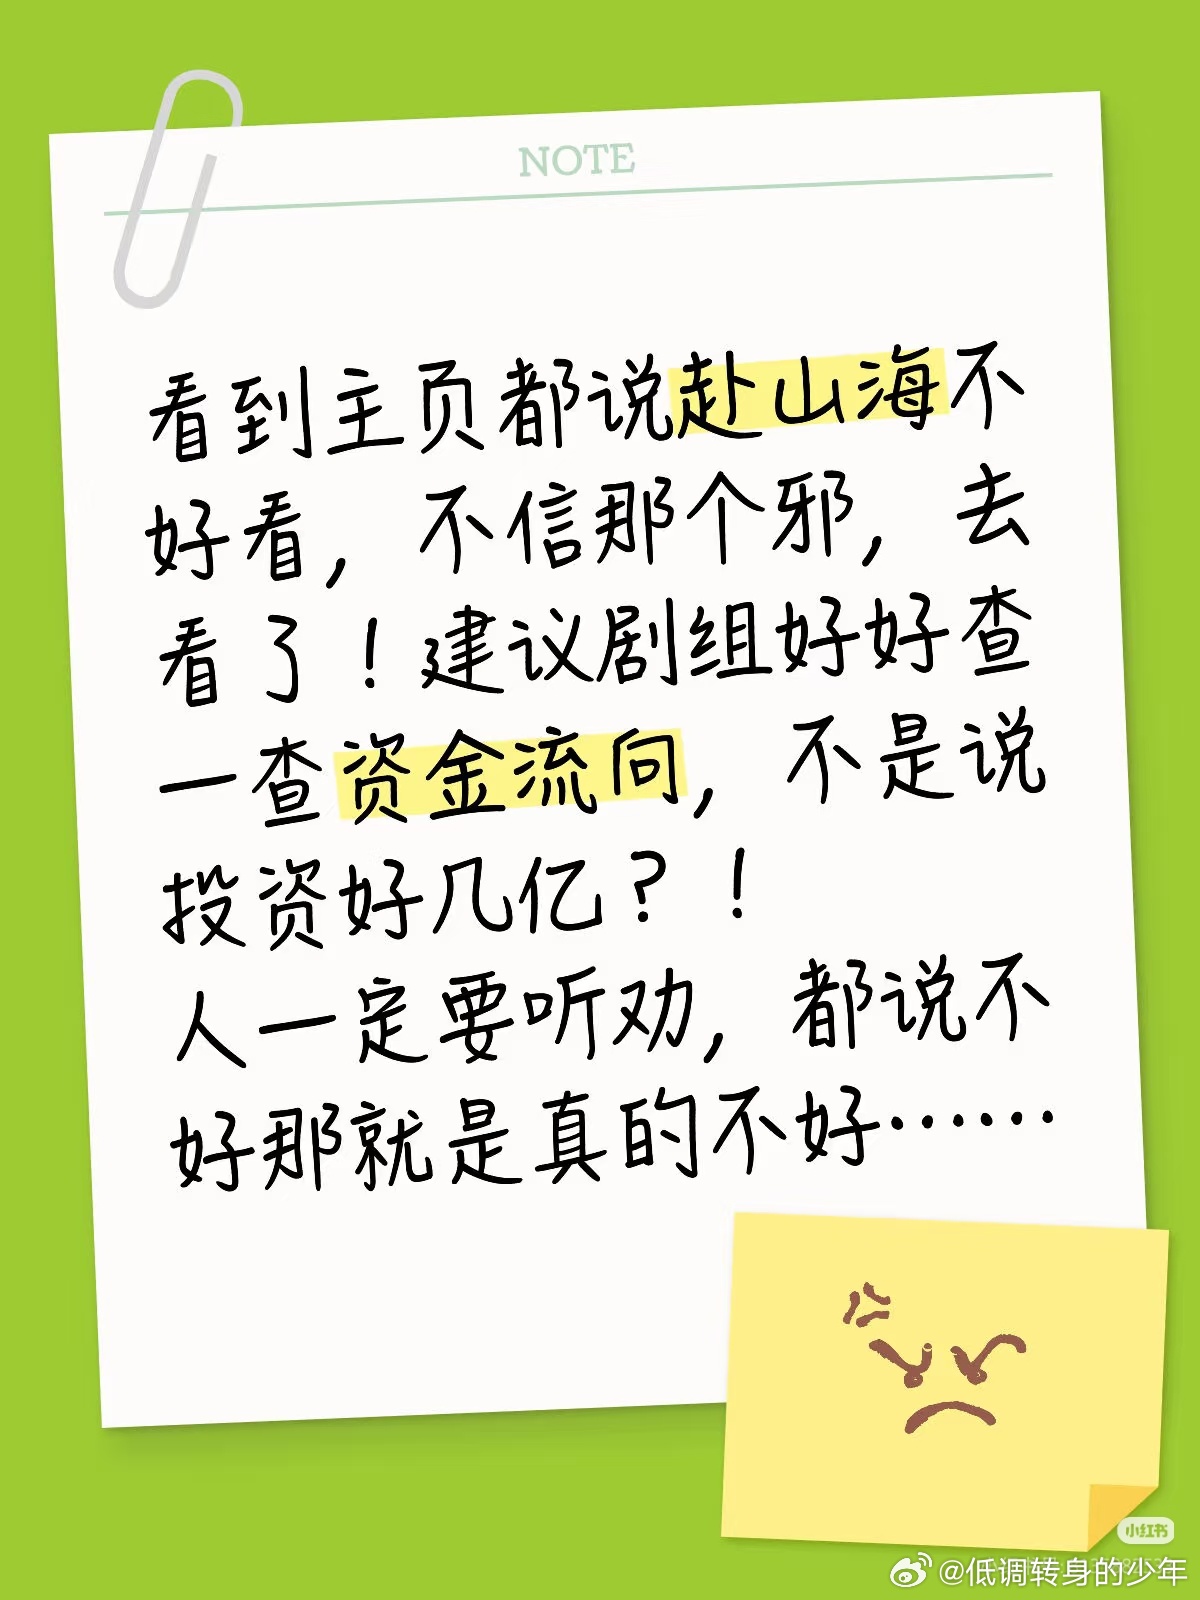 NOTE
看到主页都说赴山海不
好看，不信那个邪，去
看了！建议剧组好好查
一查资金流向，不是说
投资好几亿？！
人一定要听劝，都说不
好那就是真的不好……
小红书
@低调转身的少年